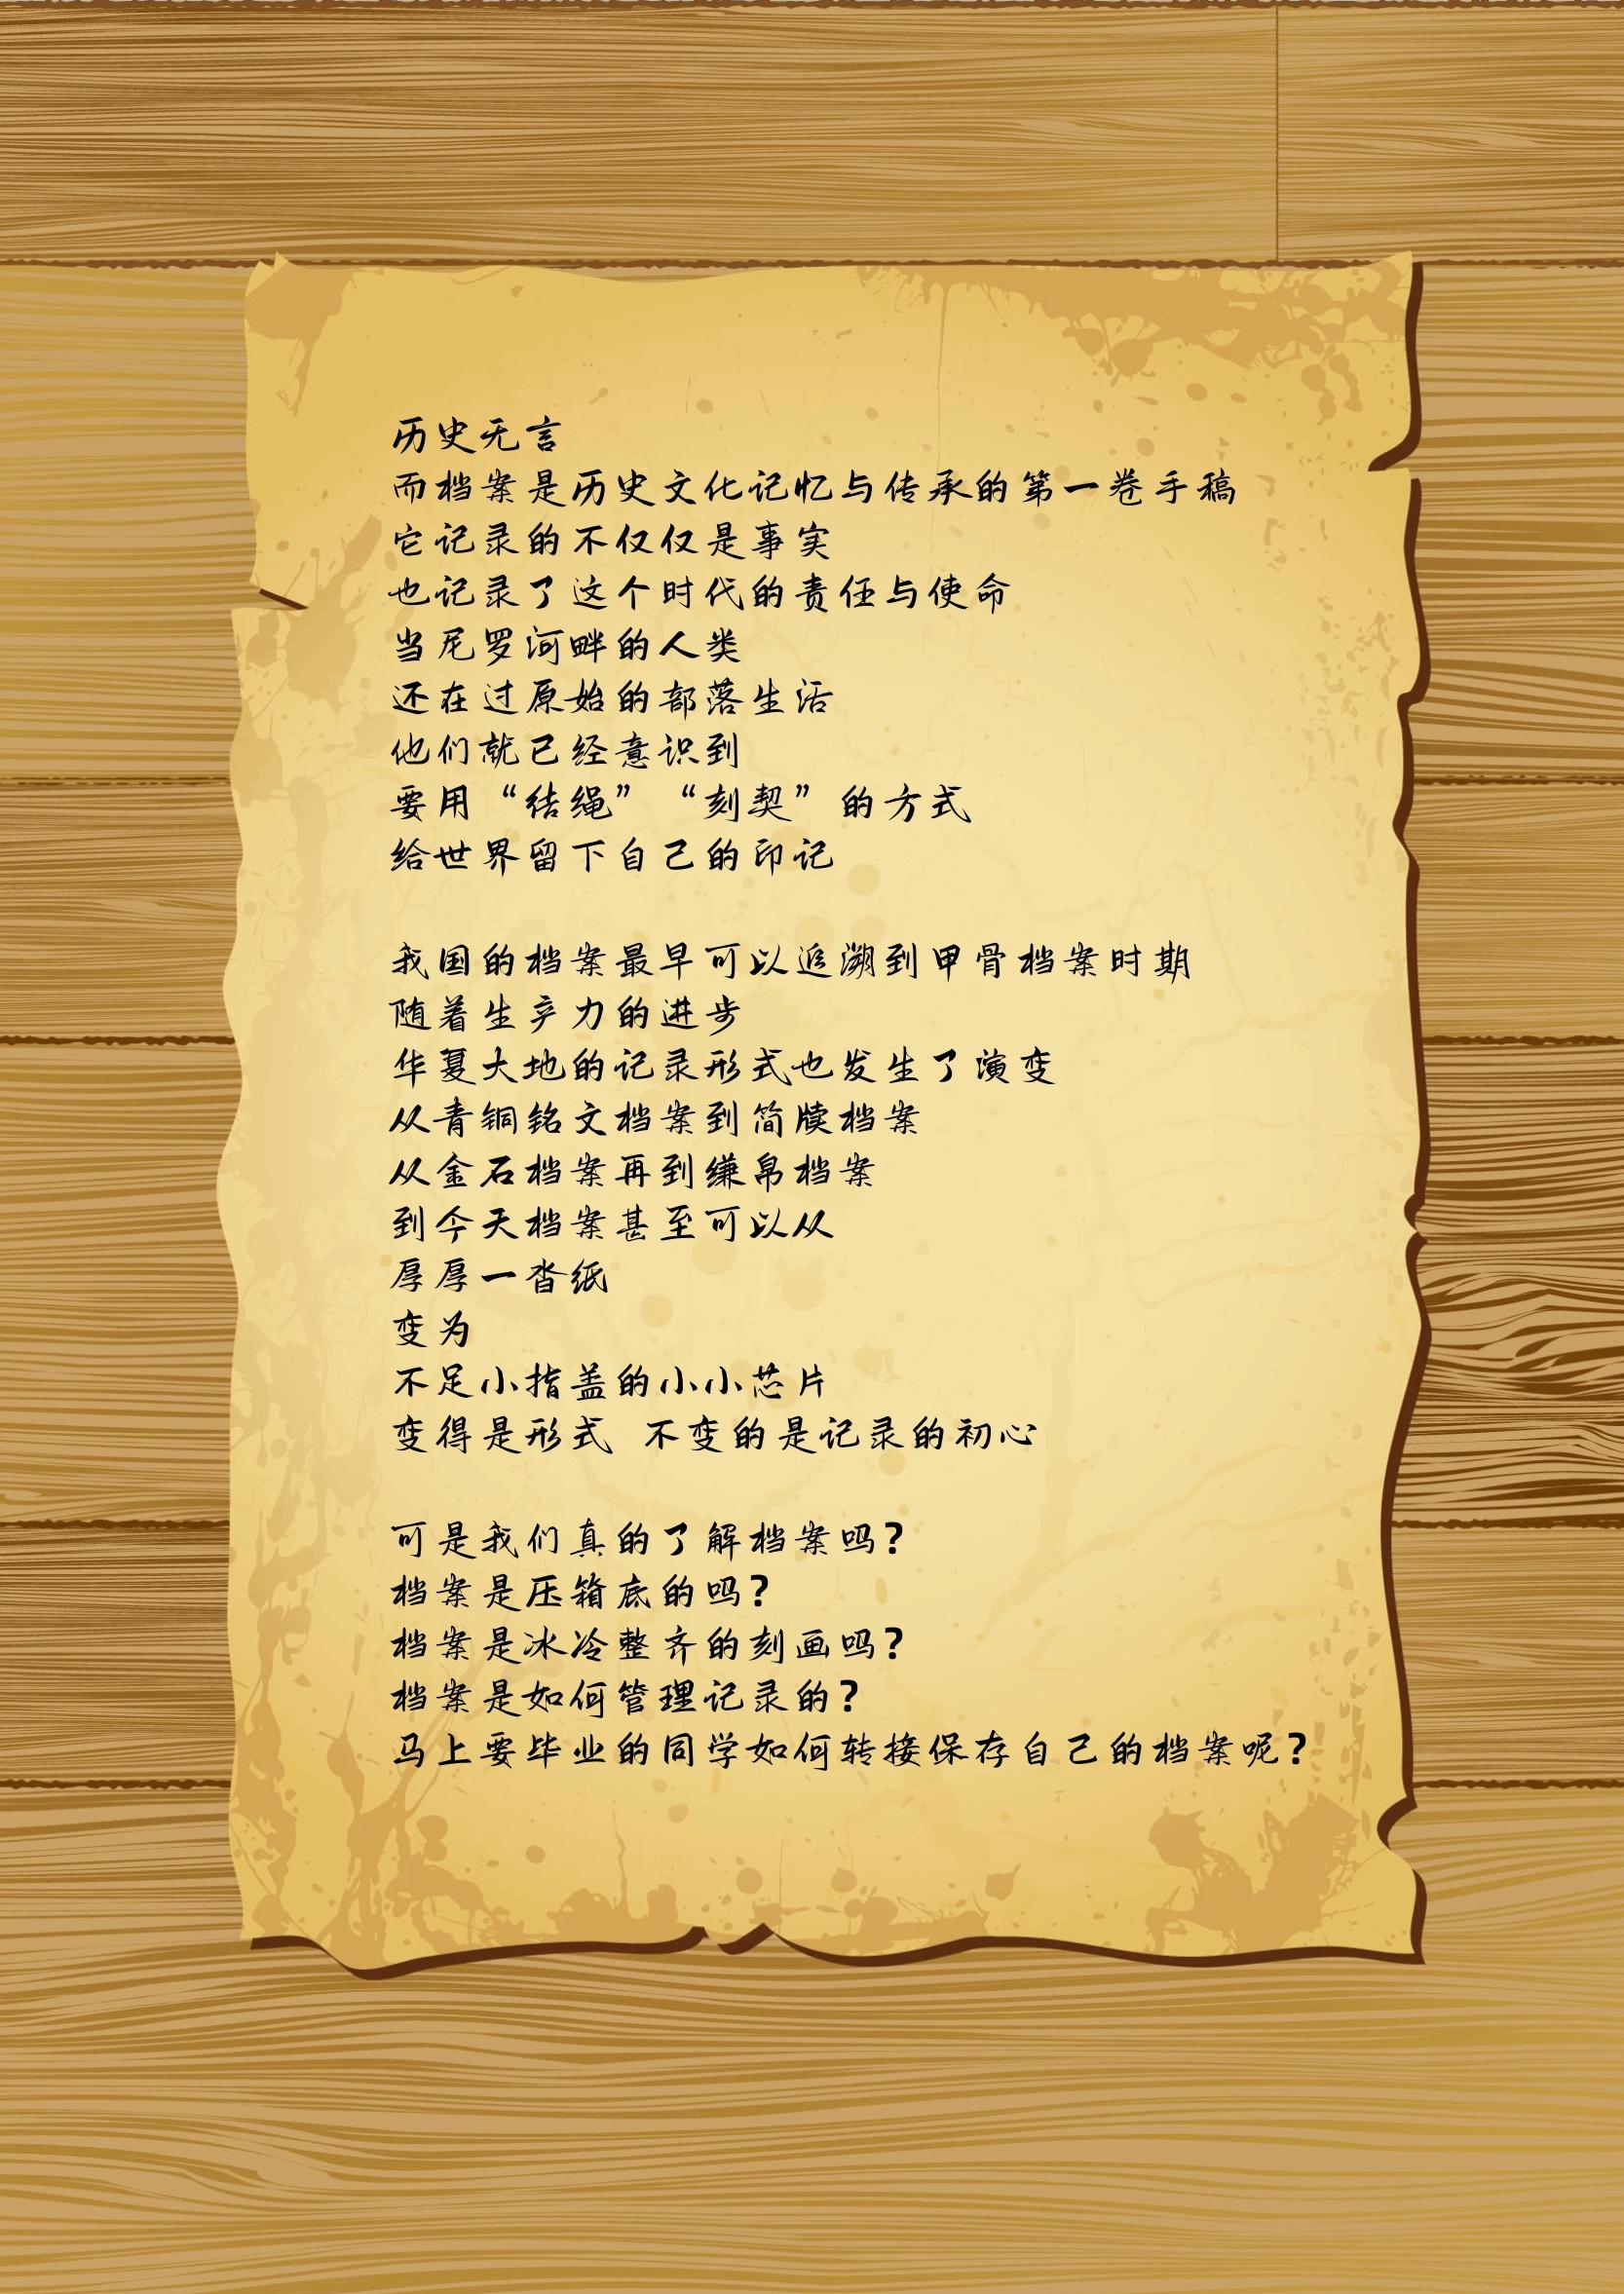 历史无言
而档案是历史文化记忆与传承的第一卷手稿
它记录的不仅仅是事实
也记录了这个时代的责任与使命
当尼罗河畔的人类
还在过原始的部落生活
他们就已经意识到
要用“结绳”“刻契”的方式
给世界留下自己的印记
我国的档案最早可以追溯到甲骨档案时期
随着生产力的进步
华夏大地的记录形式也发生了演变
从青铜铭文档案到简牍档案
从金石档案再到缣帛档案
到今天档案甚至可以从
厚厚一沓纸
变为
不足小指盖的小小芯片
变得是形式 不变的是记录的初心
可是我们真的了解档案吗?
档案是压箱底的吗?
档案是冰冷整齐的刻画吗?
档案是如何管理记录的?
马上要毕业的同学如何转接保存自己的档案呢?